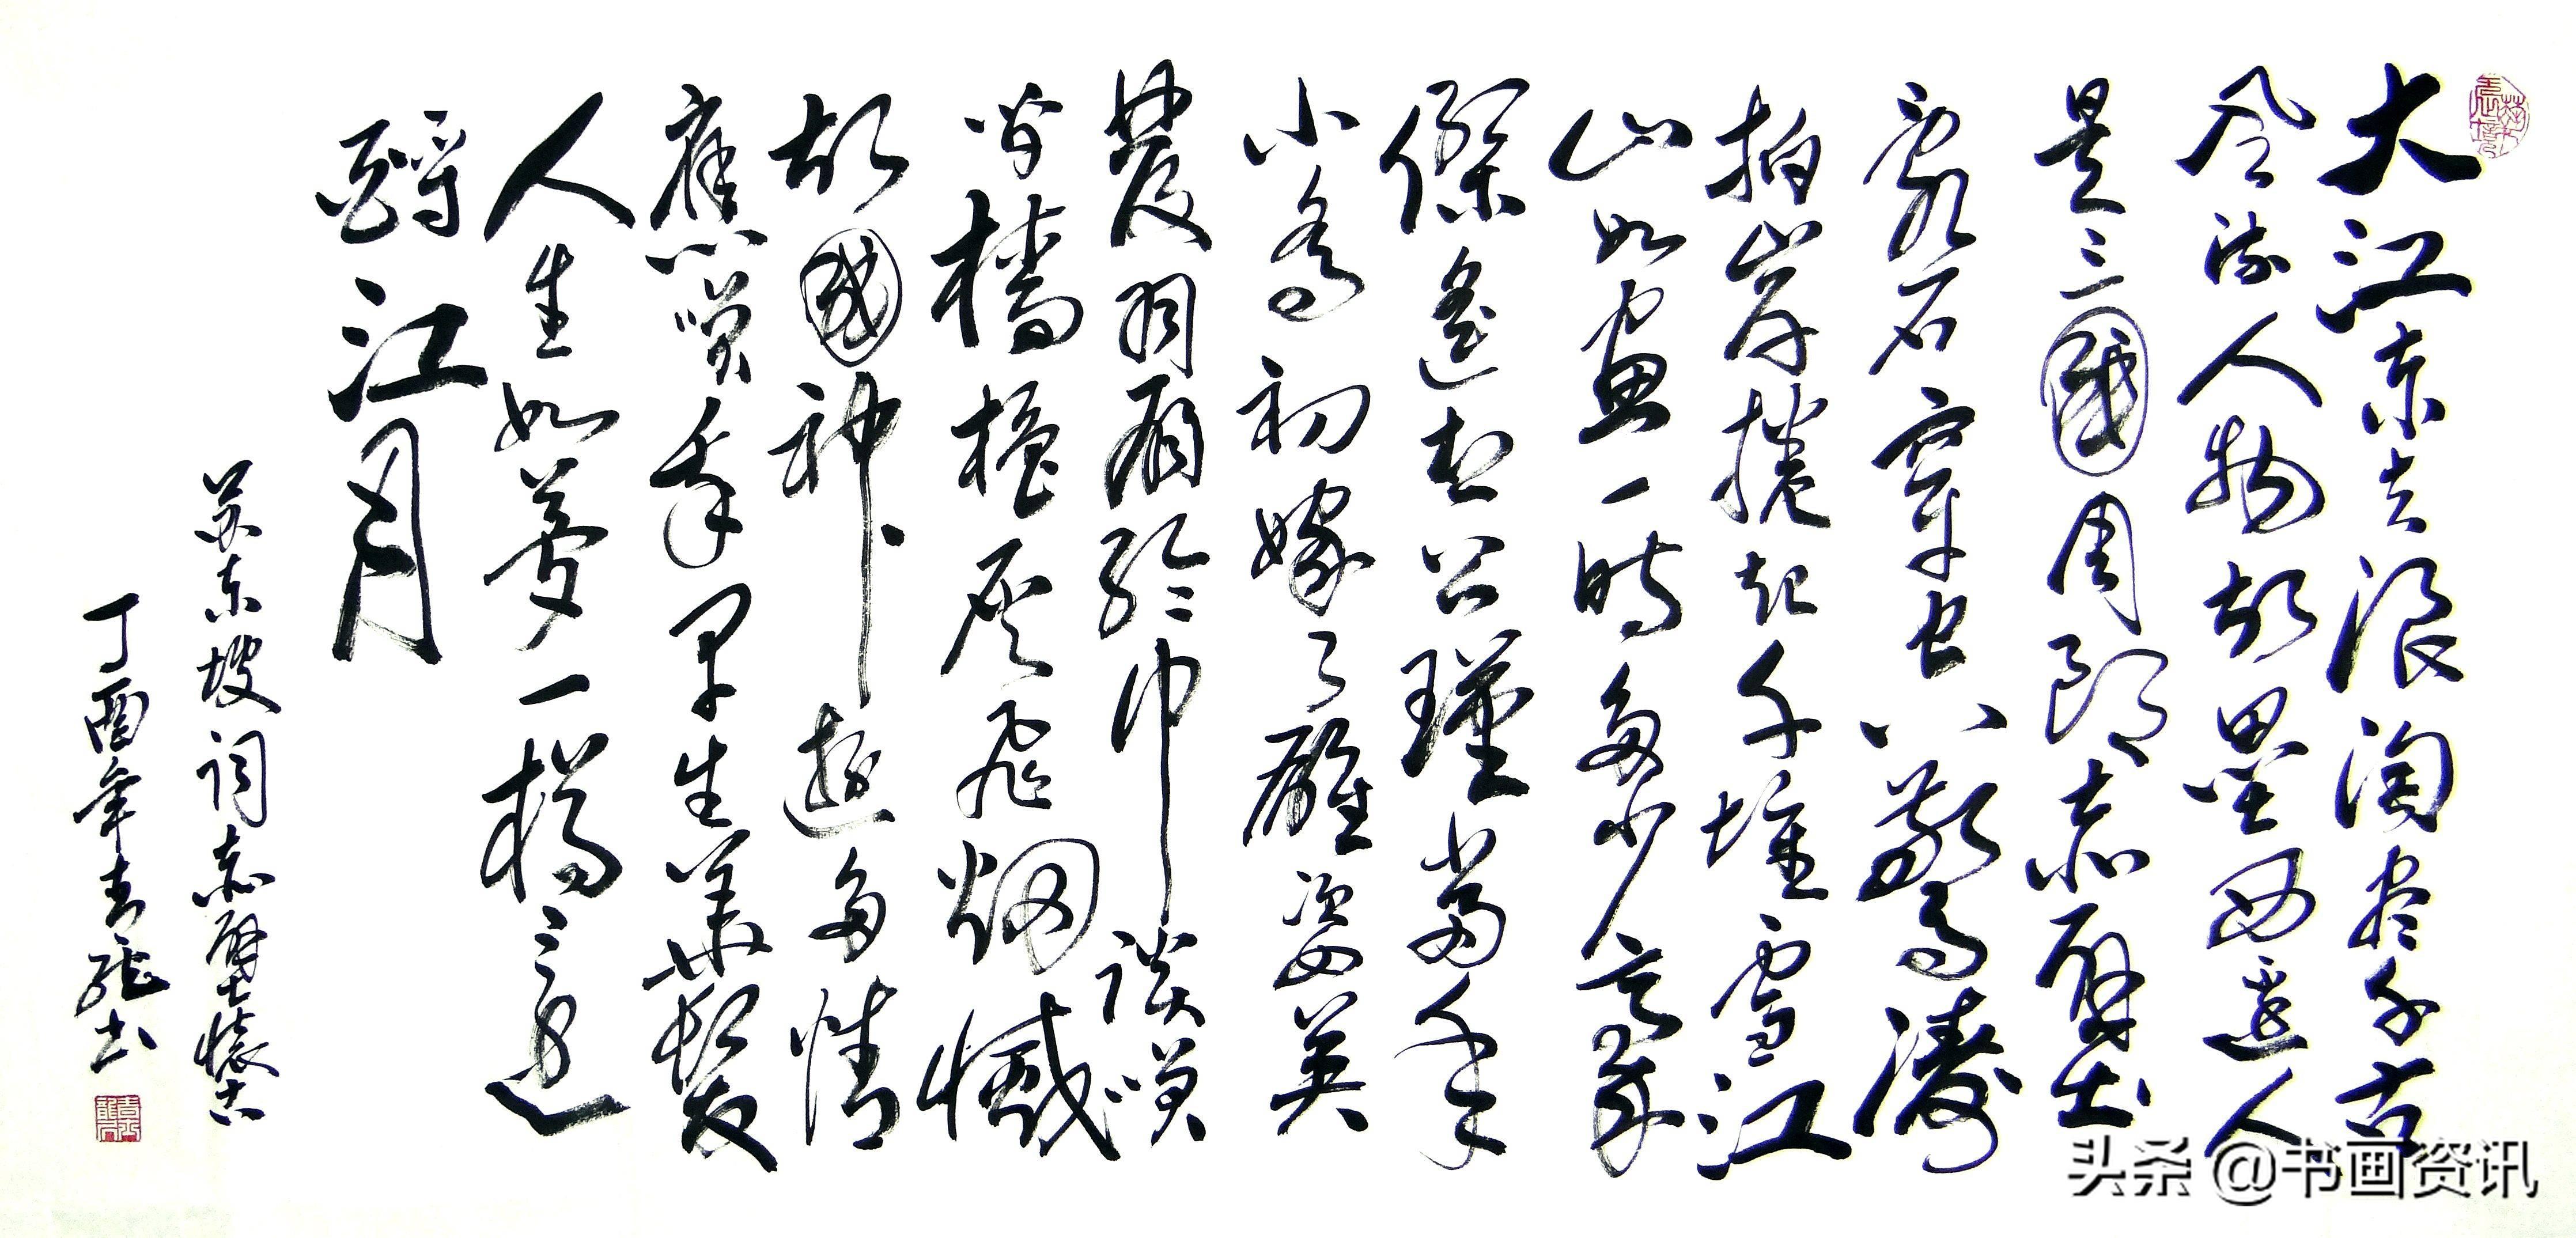 大江东去浪淘尽千古
风流人物故壘西邊人
是三國周郎赤壁
亂石穿空驚濤
拍岸捲起千堆雪江
山如畫一時多少豪
傑遥想公瑾當年
小喬初嫁了雄姿英
發羽扇纶巾談笑
間檣櫓灰飛烟滅
故國神遊多情
應笑我早生華髮
人生如夢一樽還
酹江月
苏东坡词赤壁懷古
丁酉年青龍书
头条 @书画资讯